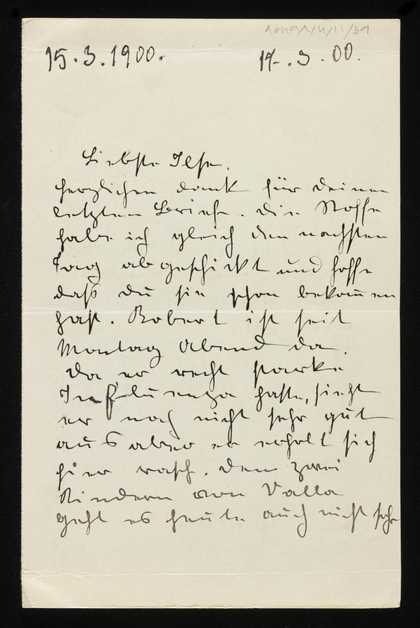 15.3.1900. 14.3.00.
Liebste Ilse.
herzlichen dank für deinen
letzten Brief. die Stoffe
habe ich gleich den nächsten
Tag abgeschickt und hoffe
daß du sie schon bekommen
hast. Robert ist seit
Montag Abend da.
Da er recht starke
Influenza hatte, sieht
er noch nicht sehr gut
aus aber er erholt sich
hier rasch. den zwei
Kindern von Valla
geht es heute auch nicht sehr